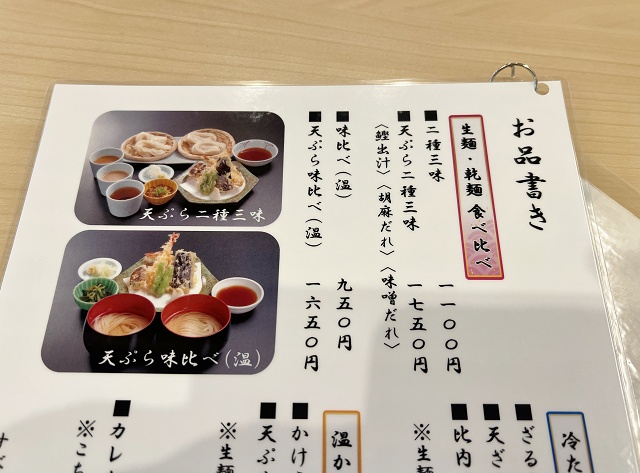 お品書き
生麺・乾麺 食べ比べ
■二種三味 一一〇〇円
■天ぷら二種三味 一七五〇円
〈鰹出汁〉〈胡麻だれ〉〈味噌だれ〉
■味比べ(温) 九五〇円
■天ぷら味比べ(温) 一六五〇円
天ぷら二種三味
天ぷら味比べ(温)
冷た
■ざる
■天ざ
■比内
※生麺
温か
■かけ
■天ぷ
※生麺
■カレ
※こち
すべ